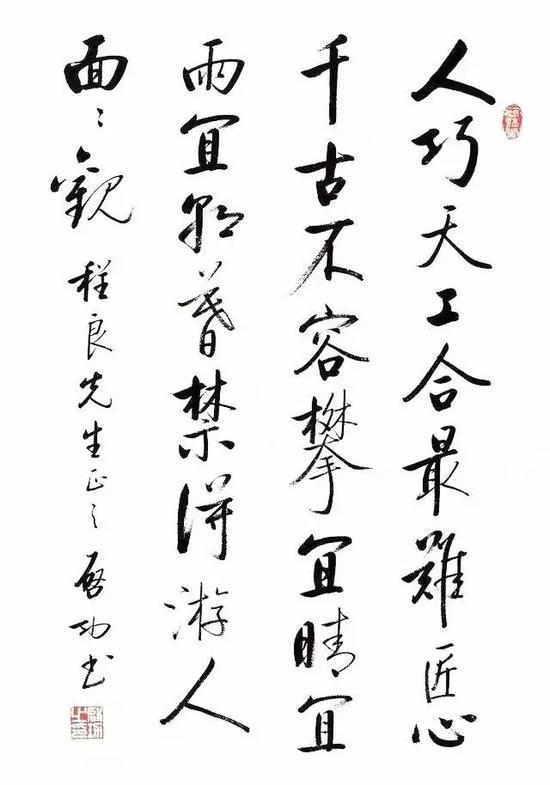 人巧天工合最難匠心
千古不容攀宜晴宜
雨宜朝暮禁得游人
面〻觀
程良先生正之
啓功书